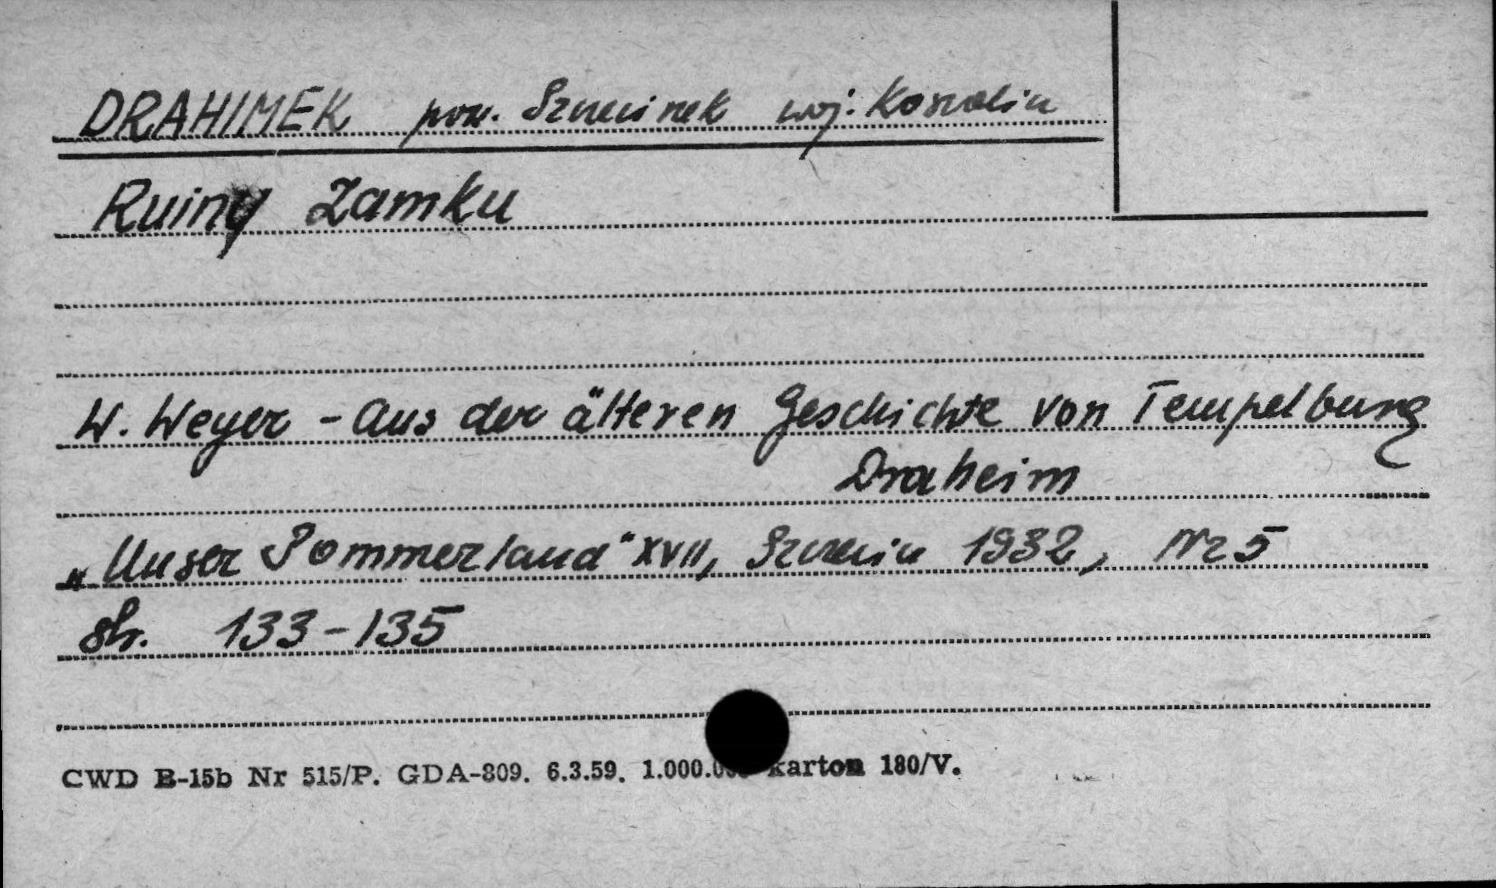 DRAHIMEK pow. Szczecinek woj. Koszalin
Ruiny Zamku
W. Weyer - Aus der älteren Geschichte von Tempelburg
Draheim
„Unser Pommerland" XVII, Szczecin 1932, Nr 5
str. 133-135
CWD B-15b Nr 515/P. GDA-809. 6.3.59. karton 180/V.